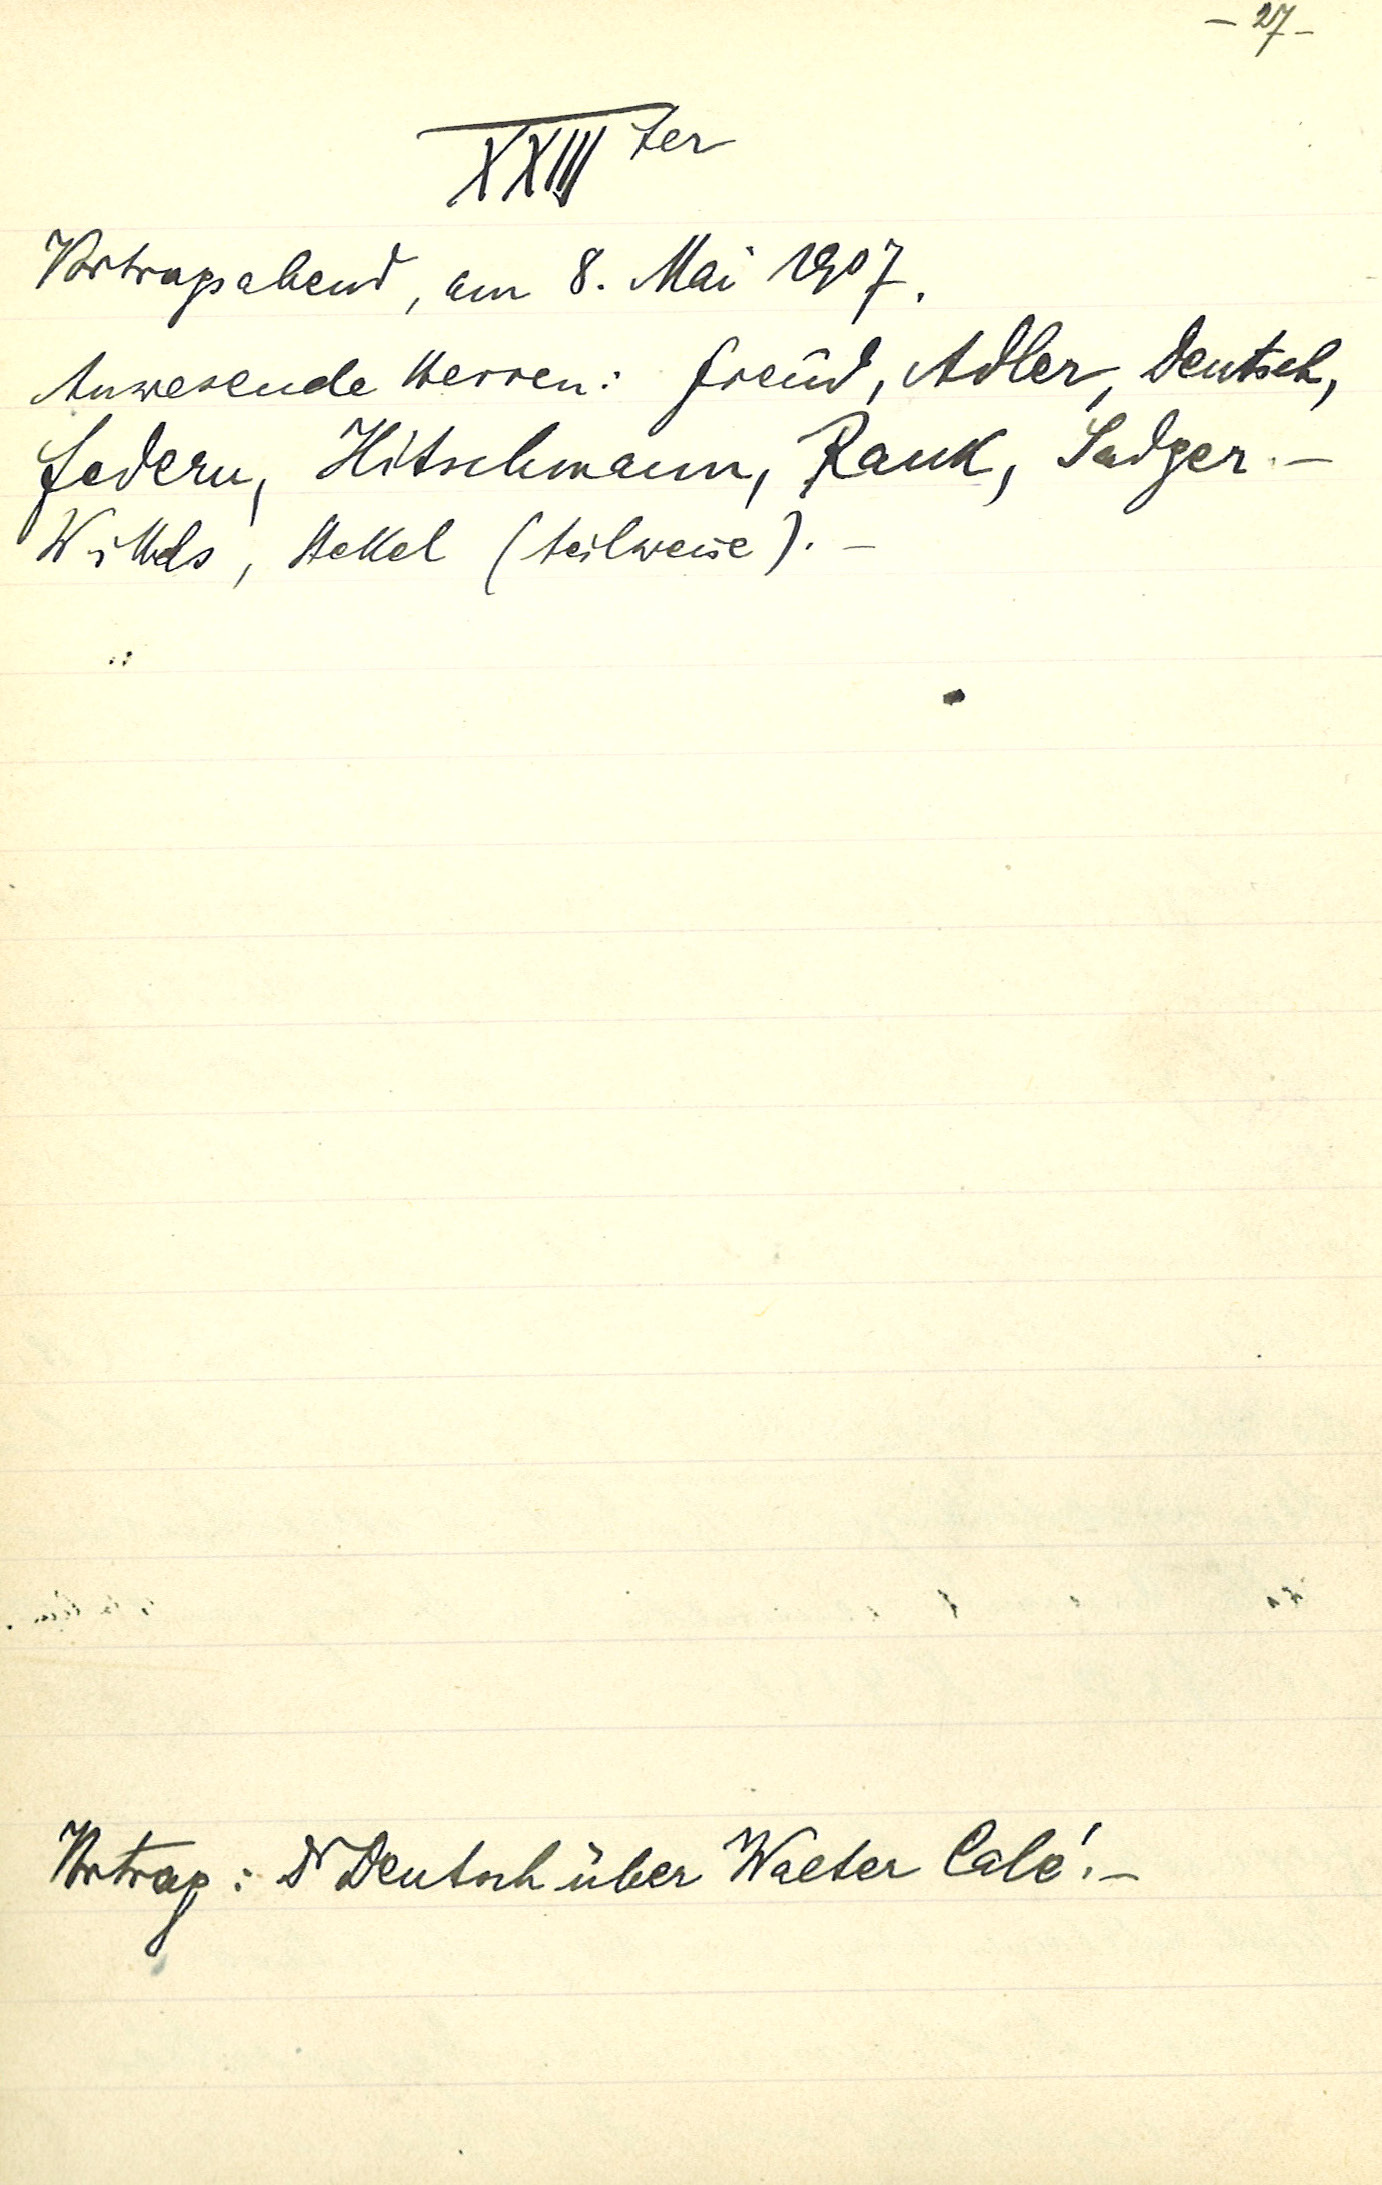 – 27 –
XXIII ter
Vortragsabend, am 8. Mai 1907.
Anwesende Herren: Freud, Adler, Deutsch,
Federn, Hitschmann, Rank, Sadger. –
Wittels, Stekel (teilweise). –
Vortrag: Dr Deutsch über Walter Calé. –